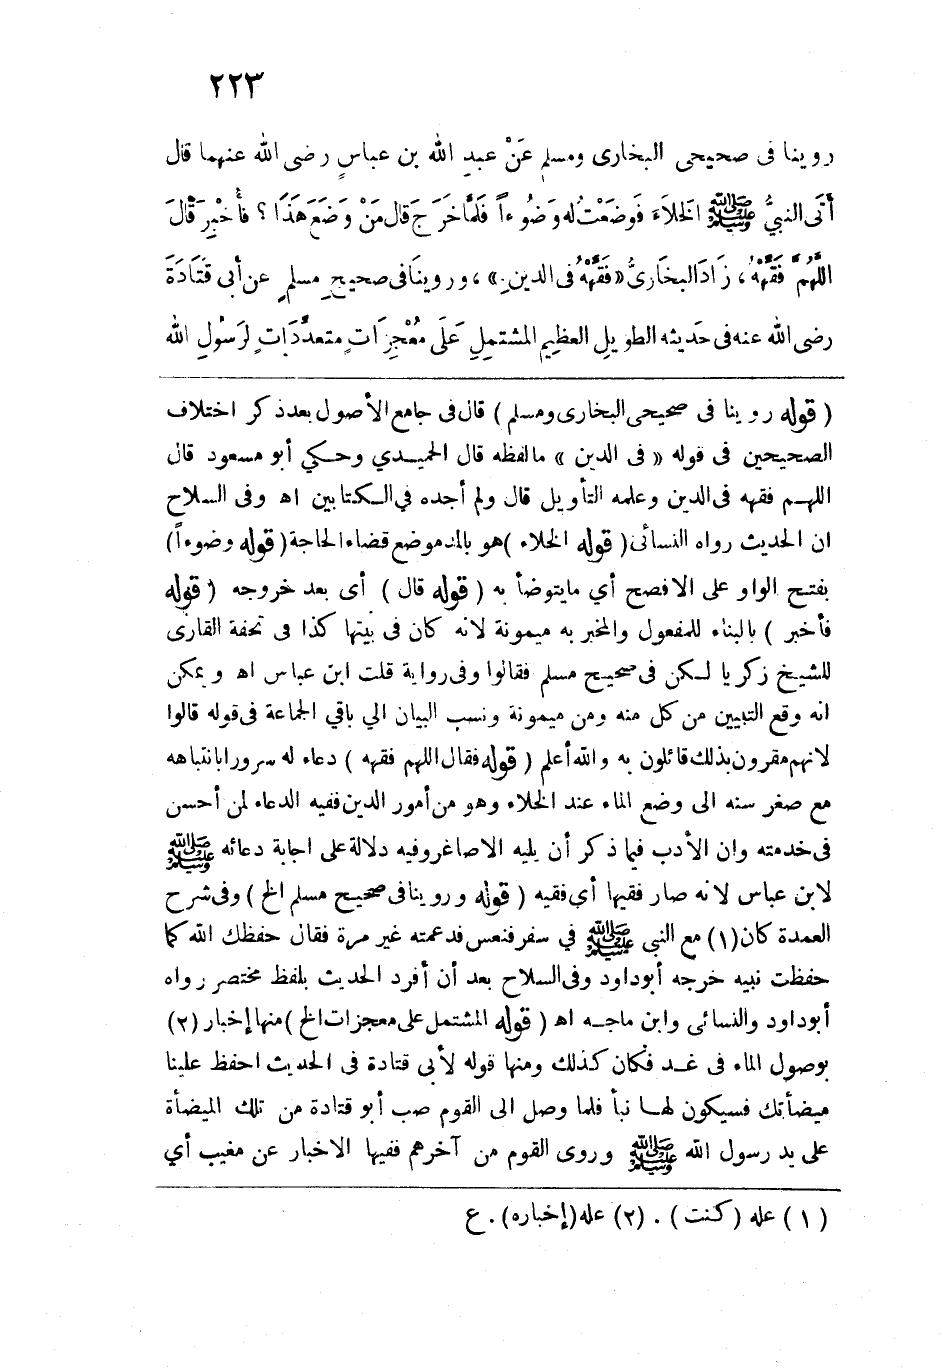 ٢٢٣
روينا فى صحيحى البخارى ومسلم عَنْ عبدِ الله بن عباسٍ رضى الله عنهما قال
أَتَى النبيُّ ﷺ الخلاَءَ فَوضَعْتُ له وَضُوءاً فَلمَّا خَرَجَ قال مَنْ وَضَعَ هَذَا ؟ فأُخْبِرَ قَالَ
اللَّهُمَّ فَقِّهْهُ ، زَادَ البخَارىُّ « فَقِّهْهُ فى الدينِ » ، وروينَا فى صحيحِ مسلمٍ عن أبى قَتَادَةَ
رضى الله عنه فى حَديثه الطويلِ العظِيم المشتملِ عَلَى مُعْجِزَاتٍ متعدِّدَاتٍ لرَسُولِ الله
( قوله روينا فى صحيحى البخارى ومسلم ) قال فى جامع الأصول بعد ذكر اختلاف
الصحيحين فى قوله « فى الدين » ما لفظه قال الحميدي وحكي أبو مسعود قال
اللهم فقهه فى الدين وعلمه التأويل قال ولم أجده في الكتابين اه وفى السلاح
ان الحديث رواه النسائى ( قوله الخلاء ) هو بالمد موضع قضاء الحاجة ( قوله وضوءاً )
بفتح الواو على الافصح أي ما يتوضأ به ( قوله قال ) أى بعد خروجه ( قوله
فأخبر ) بالبناء للمفعول والمخبر به ميمونة لانه كان فى بيتها كذا فى تحفة القارى
للشيخ زكريا لكن فى صحيح مسلم فقالوا وفى رواية قلت ابن عباس اه ويمكن
انه وقع التبيين من كل منه ومن ميمونة ونسب البيان الي باقي الجماعة فى قوله قالوا
لانهم مقرون بذلك قائلون به والله أعلم ( قوله فقال اللهم فقهه ) دعاء له سرورا بانتباهه
مع صغر سنه الى وضع الماء عند الخلاء وهو من أمور الدين ففيه الدعاء لمن أحسن
فى خدمته وان الأدب فيما ذكر أن يليه الاصاغر وفيه دلالة على اجابة دعائه ﷺ
لابن عباس لانه صار فقيها أي فقيه ( قوله وروينا فى صحيح مسلم الخ ) وفى شرح
العمدة كان (١) مع النبى ﷺ في سفر فنعس فدعمته غير مرة فقال حفظك الله كما
حفظت نبيه خرجه أبو داود وفى السلاح بعد أن أفرد الحديث بلفظ مختصر رواه
أبو داود والنسائى وابن ماجه اه ( قوله المشتمل على معجزات الخ ) منها إخبار (٢)
بوصول الماء فى غد فكان كذلك ومنها قوله لأبى قتادة فى الحديث احفظ علينا
ميضأتك فسيكون لها نبأ فلما وصل الى القوم صب أبو قتادة من تلك الميضأة
على يد رسول الله ﷺ وروى القوم من آخرهم ففيها الاخبار عن مغيب أي
(١) عله (كنت) . (٢) عله (إخباره) . ع